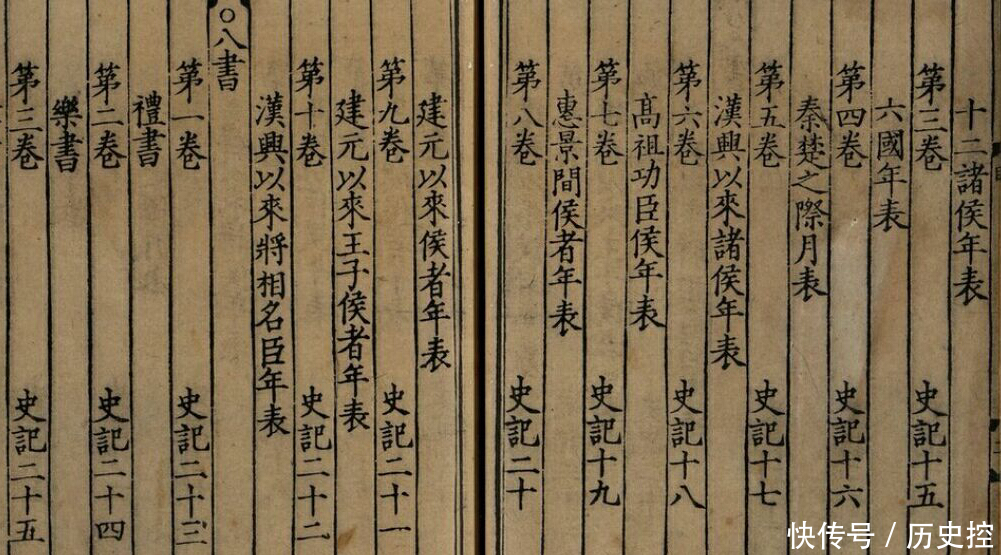 十二諸侯年表
第三卷 史記十五
六國年表
第四卷 史記十六
秦楚之際月表
第五卷 史記十七
漢興以來諸侯年表
第六卷 史記十八
高祖功臣侯年表
第七卷 史記十九
惠景間侯者年表
第八卷 史記二十
建元以來侯者年表
第九卷 史記二十一
建元以來王子侯者年表
第十卷 史記二十二
漢興以來將相名臣年表
○八書
第一卷 史記二十三
禮書
第二卷 史記二十四
樂書
第三卷 史記二十五
快传号 / 历史控